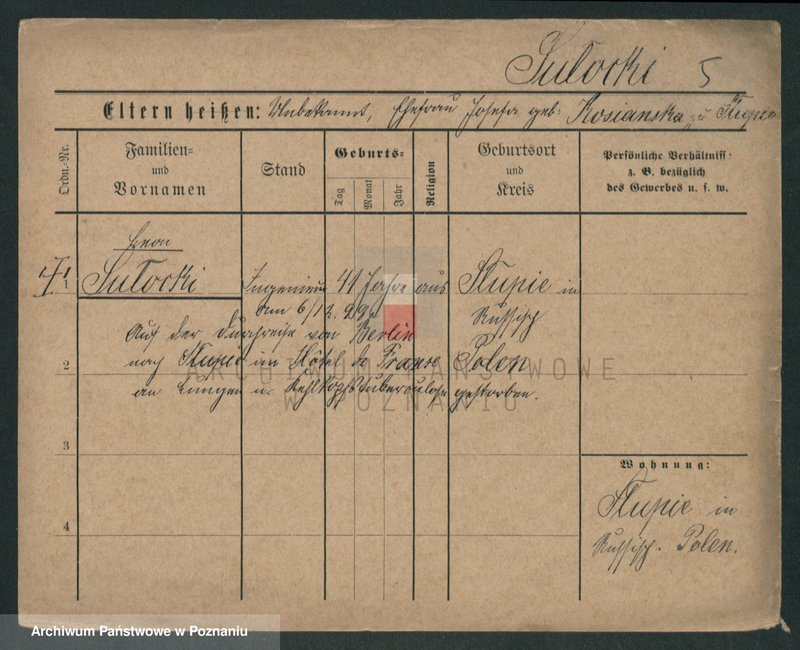 Sułocki 5
Eltern heißen: Unbekannt, Ehefrau Josefa geb: Kosianska zu Słupie
Ordn.-Nr.
Familien- und Vornamen
Stand
Geburts-
Tag
Monat
Jahr
Religion
Geburtsort und Kreis
Persönliche Verhältniss: z. B. bezüglich des Gewerbes u. s. w.
Leon
1 Sułocki Ingenieur 41 Jahre aus Słupie in
am 6/12. 99. Russisch
Auf der Durchreise von Berlin
2 nach Słupie im Hôtel de France Polen
an Lungen u. Kehlkopfstuberculose gestorben.
3
Wohnung:
Słupie in
4 Russisch-Polen.
ARCHIWUM PAŃSTWOWE
W POZNANIU
Archiwum Państwowe w Poznaniu